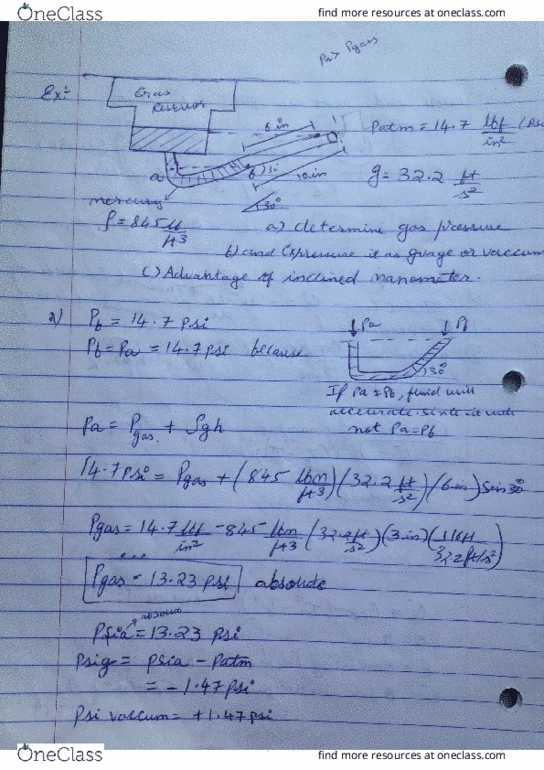 OneClass
find more resources at oneclass.com
Pa > Pgas
Ex:
Gas
Reservoir
6 in
10 in
Patm = 14.7 lbf/in² (psi
a
b
30°
g = 32.2 ft/s²
mercury
ρ = 845 lb/ft3
30°
a) determine gas pressure
b) and Expressure it as guage or vaccum
c) Advantage of inclined manometer.
a) Pb = 14.7 psi
Pb = Pa = 14.7 psi because
↓Pa
30°
If Pa = Pb, fluid will
not Pa = Pb
Pa = Pgas + ρgh
14.7 psi = Pgas + (845 lbm/ft3)(32.2 ft/s²)(6 in) sin 30
Pgas = 14.7 lbf/in² - 845 lbm/ft3 (32.2 ft/s²)(3 in)
Pgas = 13.23 psi absolute
absolute
Psia = 13.23 psi
Psig = Psia - Patm
= - 1.47 psi
Psi vaccum = +1.47 psi
OneClass
find more resources at oneclass.com